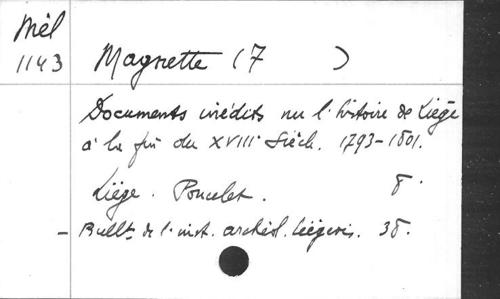 Mél
1143
Magnette (F )
Documents inédits sur l'histoire de Liège
à la fin du XVIII Siècle. 1793-1801.
Liège. Poncelet. 8.
- Bullt. de l'inst. archéol. liégeois. 38.